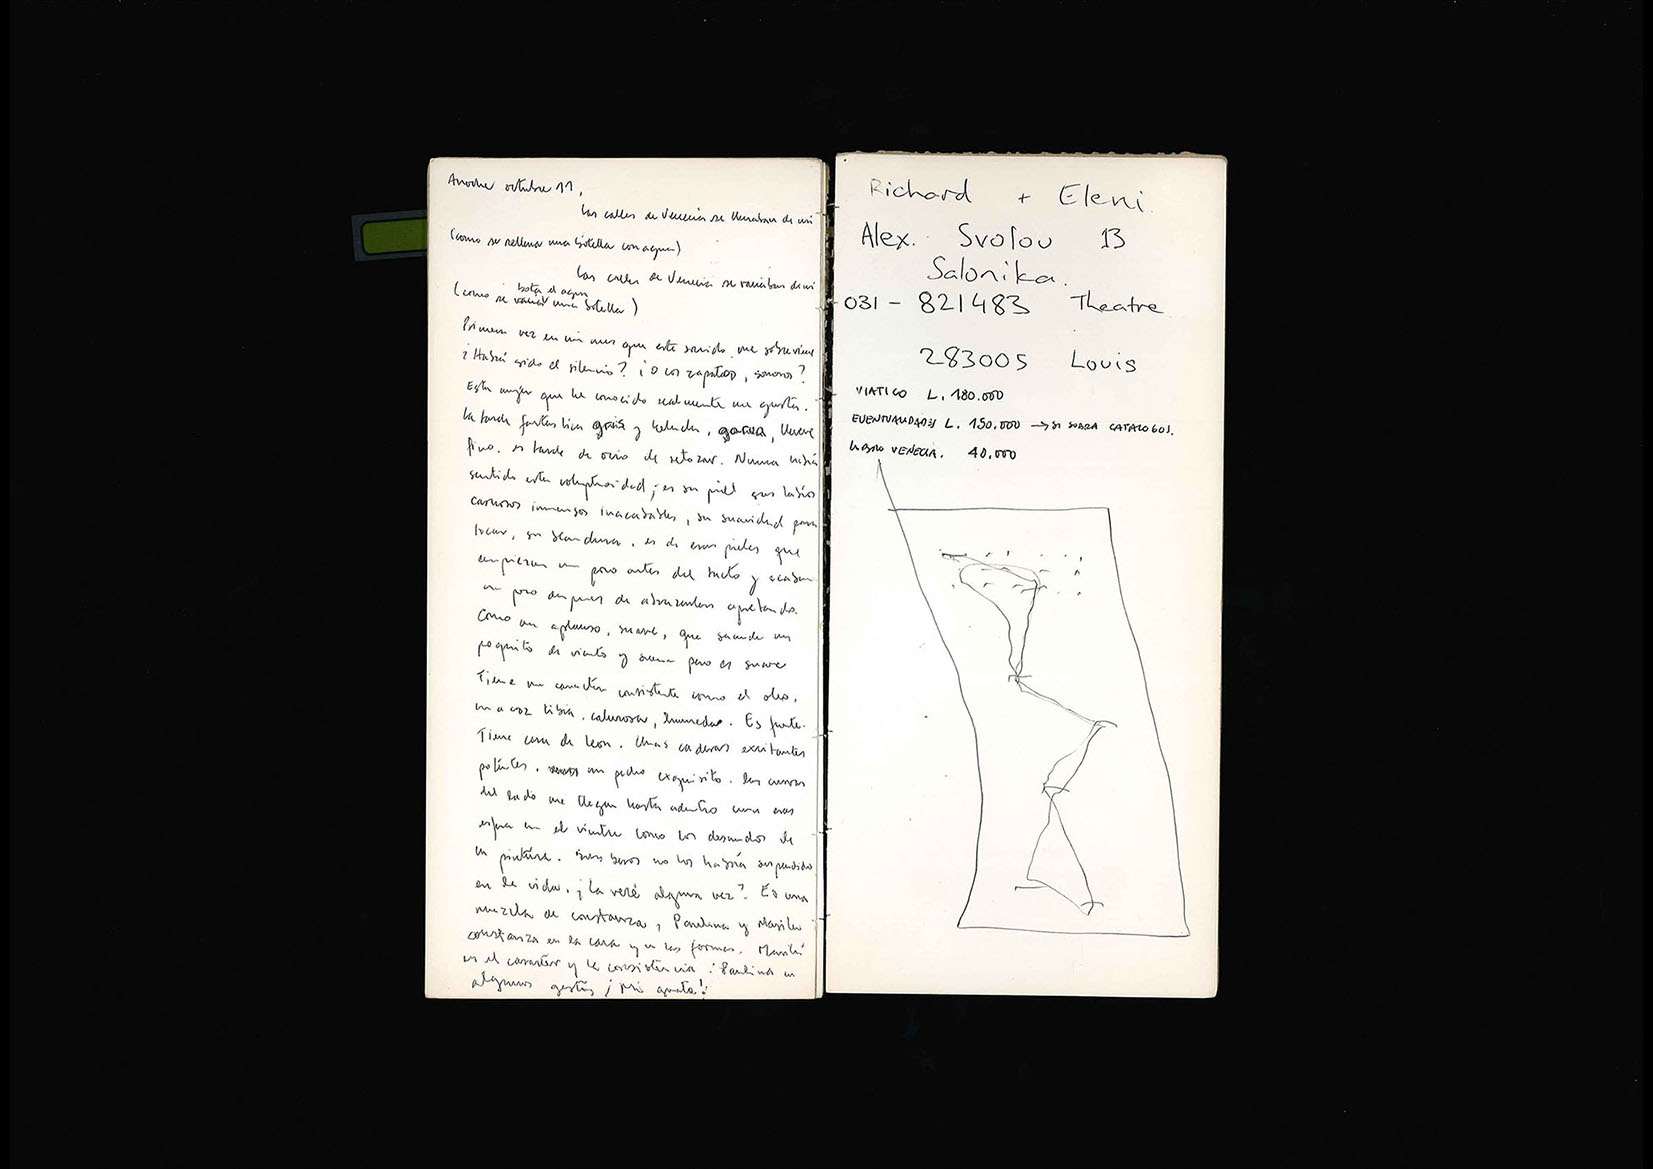 Anoche octubre 11,
Las calles de Venecia se llenaban de mi
(como se rellena una botella con agua)
Las calles de Venecia se vaciaban de mi
bota el agua
(como se vacia una botella)
Primera vez en un mes que este sonido me sobreviene
¿Habrá sido el silencio? ¿O los zapatos, sonoros?
Esta mujer que he conocido realmente me gusta.
La tarde fantastica gris y helada, llueve
fino. es tarde de ocio de retozar. Nunca había
sentido esta voluptuosidad; es su piel sus labios
carnosos inmensos inacabables, su suavidad para
tocar, su blandura. es de esas pieles que
empiezan un poco antes del tacto y acaban
un poco despues de abrazarlas apretando.
Como un aplauso, suave, que sacude un
poquito de viento y suena pero es suave
Tiene un caracter consistente como el oleo.
una voz tibia, calurosa, humeda. Es fuerte.
Tiene cara de leon. Unas caderas exitantes
potentes. un pecho exquisito. las curvas
del lado me llegan hasta adentro con esas
en el vientre como los desnudos de
la pintura. Sus besos no los habría suspendido
en la vida. ¿La veré alguna vez? Es una
mezcla de constanza, Paulina y Marilu
constanza en la cara y en las formas. Marilú
en el caracter y la consistencia. Paulina en
algunos gestos ¡Me gusta!
Richard + Eleni
Alex. Svolou 13
Salonika.
031 - 821483 Theatre
283005 Louis
VIATICO L. 180.000
EVENTUALIDADES L. 150.000 → SI SOBRA CATALOGOS.
LIBRO VENECIA. 40.000